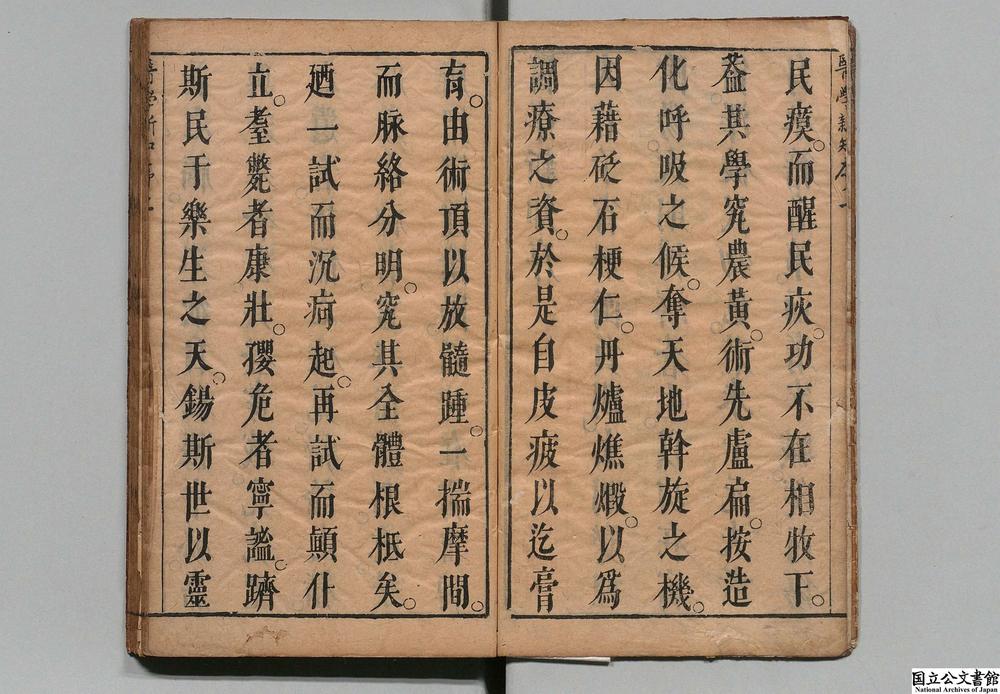 民瘼。而醒民疢。功不在相牧下。
葢其學究農黃。術先盧扁。按造
化呼吸之候。奪天地斡旋之機。
因藉砭石梗仁。丹爐燋煅。以爲
調療之資。於是自皮疲以迄膏
肓。由術頂以放髓踵。一揣摩間。
而脉絡分明。究其全體根柢矣。
廼一試而沉疴起。再試而顛仆
立。耋斃者康壯。㹛危者寧謐。躋
斯民于樂生之天。錫斯世以靈
国立公文書館
National Archives of Japan